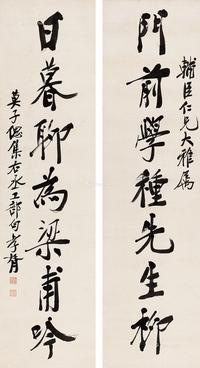 輔臣仁兄大雅屬
門前學種先生柳
日暮聊為梁甫吟
莫子偲集右丞工部句 孝胥